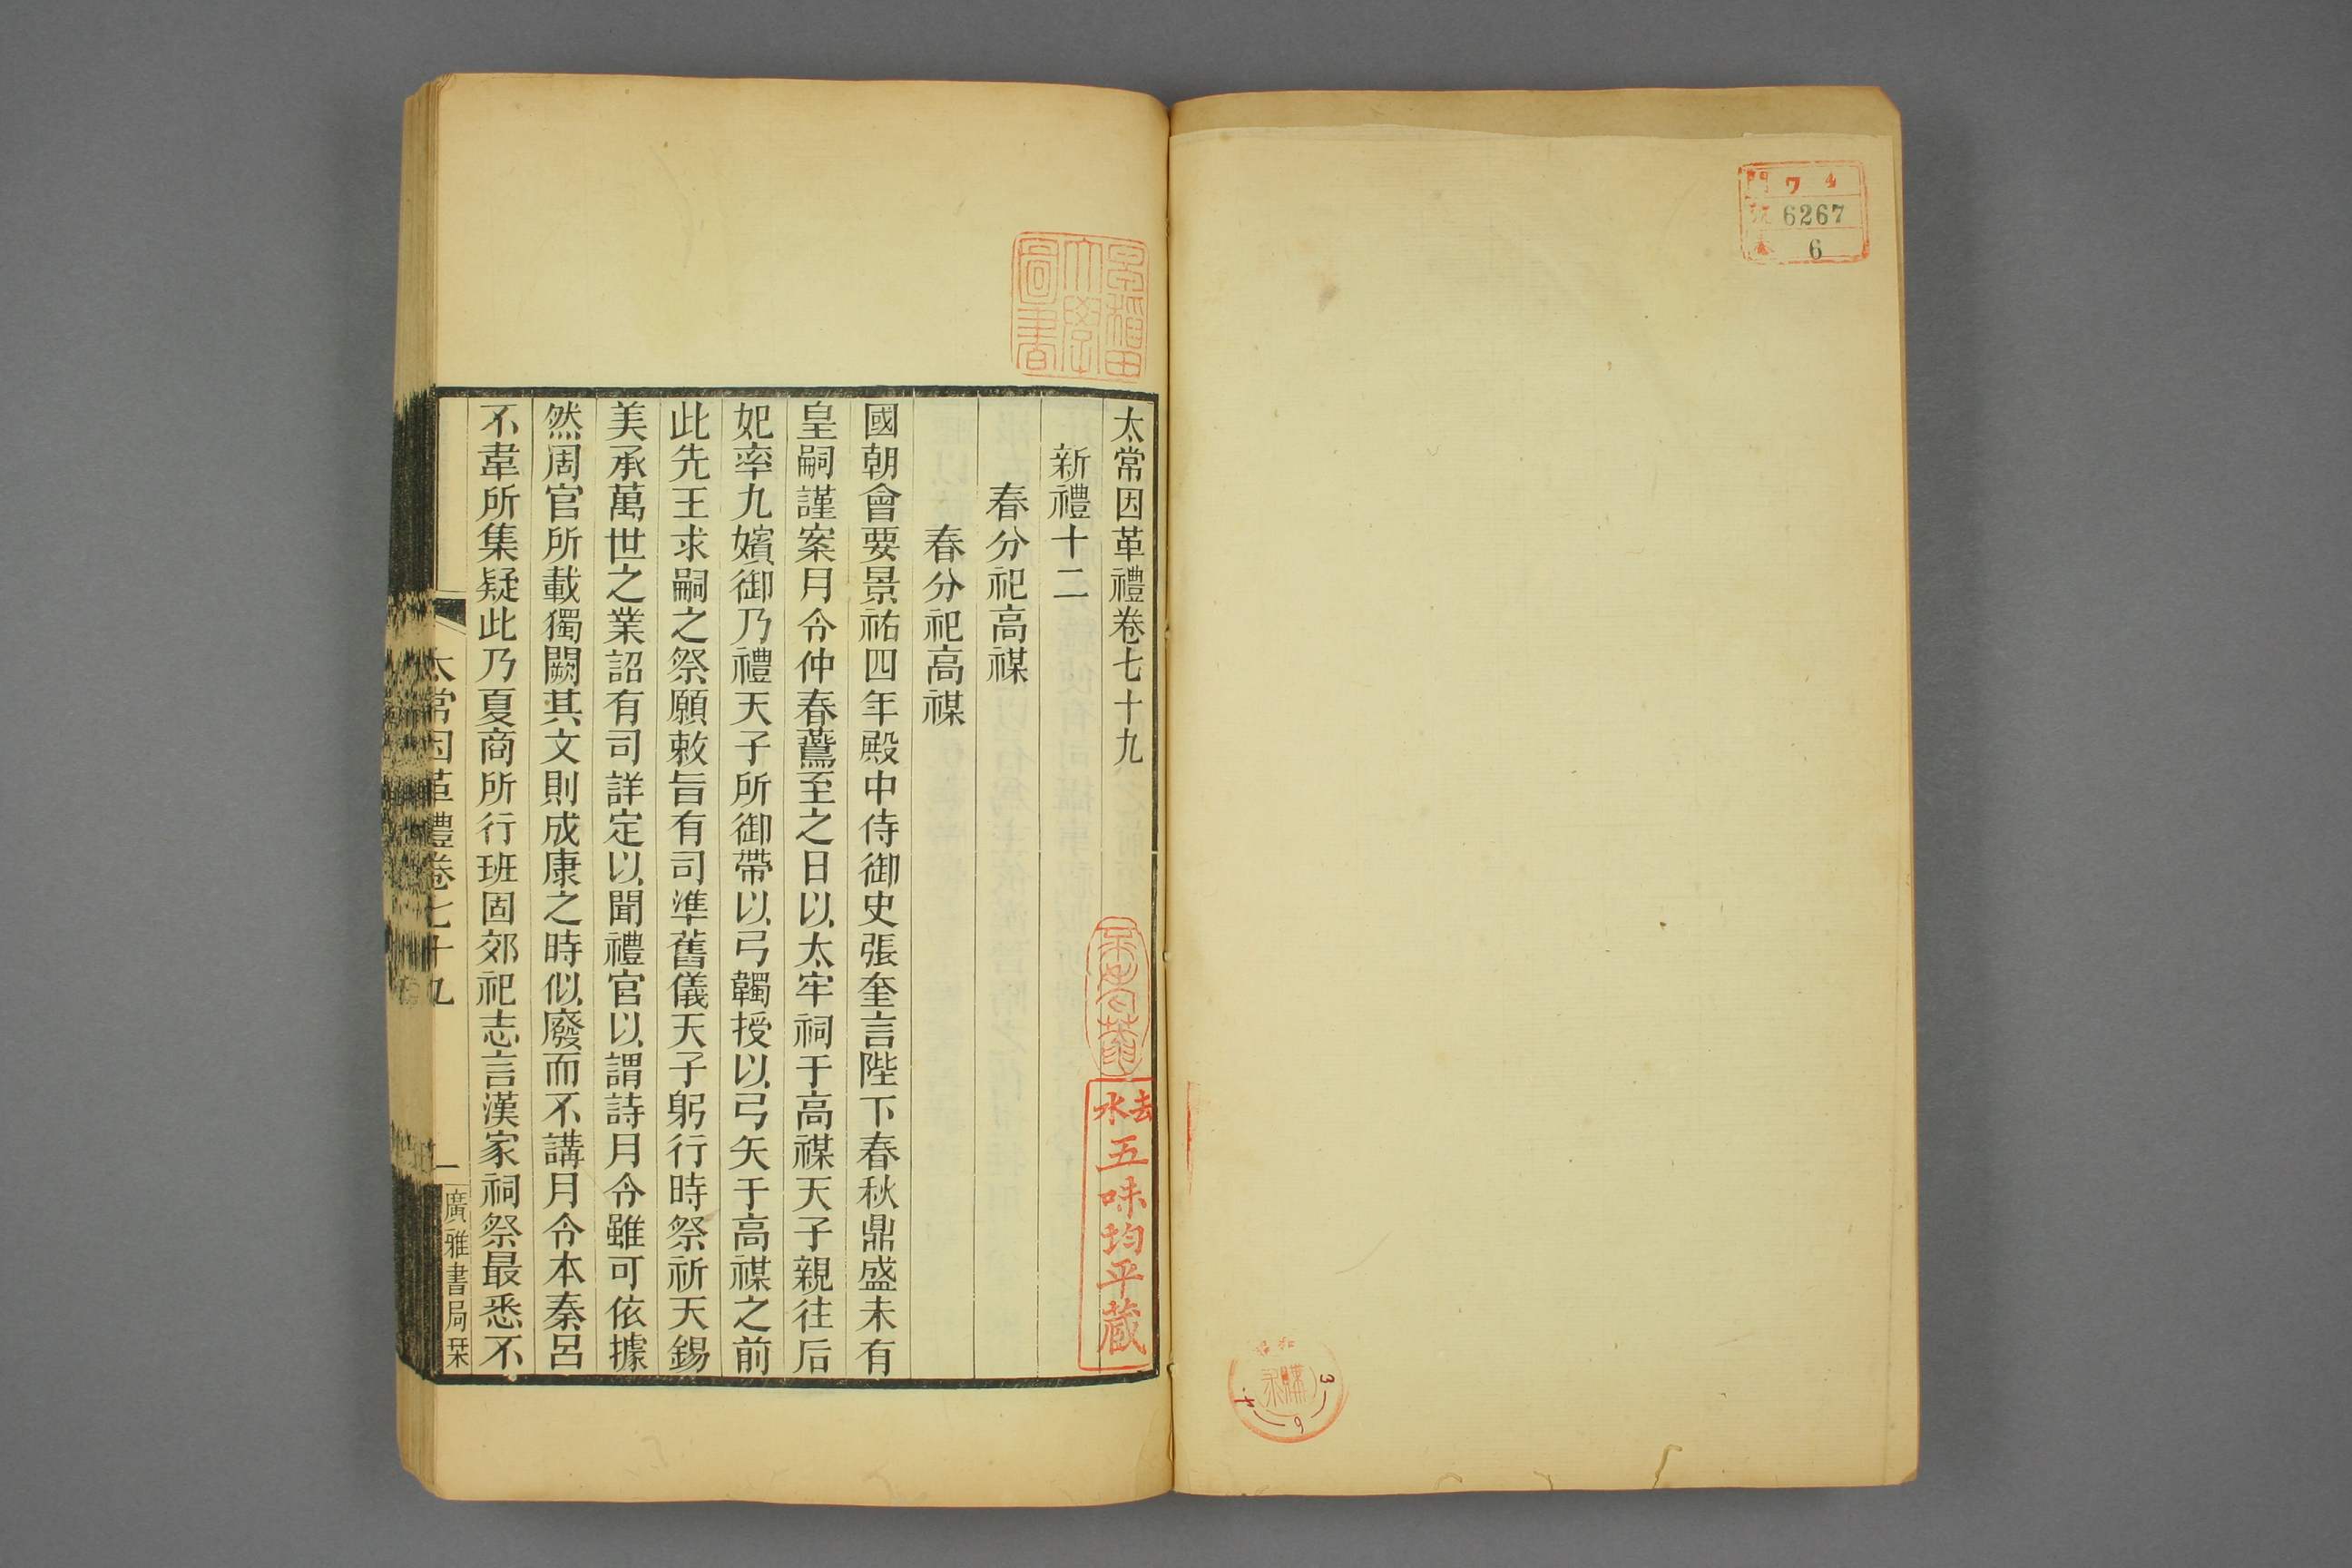 門 ワ 4
號 6267
卷 6
早稲田
大學
圖書
太常因革禮卷七十九
新禮十二
春分祀高禖
春分祀高禖
國朝會要景祐四年殿中侍御史張奎言陛下春秋鼎盛未有
皇嗣謹案月令仲春鷰至之日以太牢祠于高禖天子親往后
妃率九嬪御乃禮天子所御帶以弓韣授以弓矢于高禖之前
此先王求嗣之祭願敕旨有司準舊儀天子躬行時祭祈天錫
美承萬世之業詔有司詳定以聞禮官以謂詩月令雖可依據
然周官所載獨闕其文則成康之時似廢而不講月令本秦呂
不韋所集疑此乃夏商所行班固郊祀志言漢家祠祭最悉不
太常因革禮卷七十九
一
廣雅書局栞
去水
五味均平蔵
昭和
購求
3 6